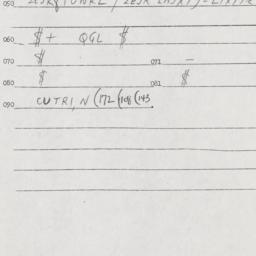 050
060 $+ QGL $
070 $ 071 -
080 $ 081 $
090 CUTRI, N (172 (108 (143